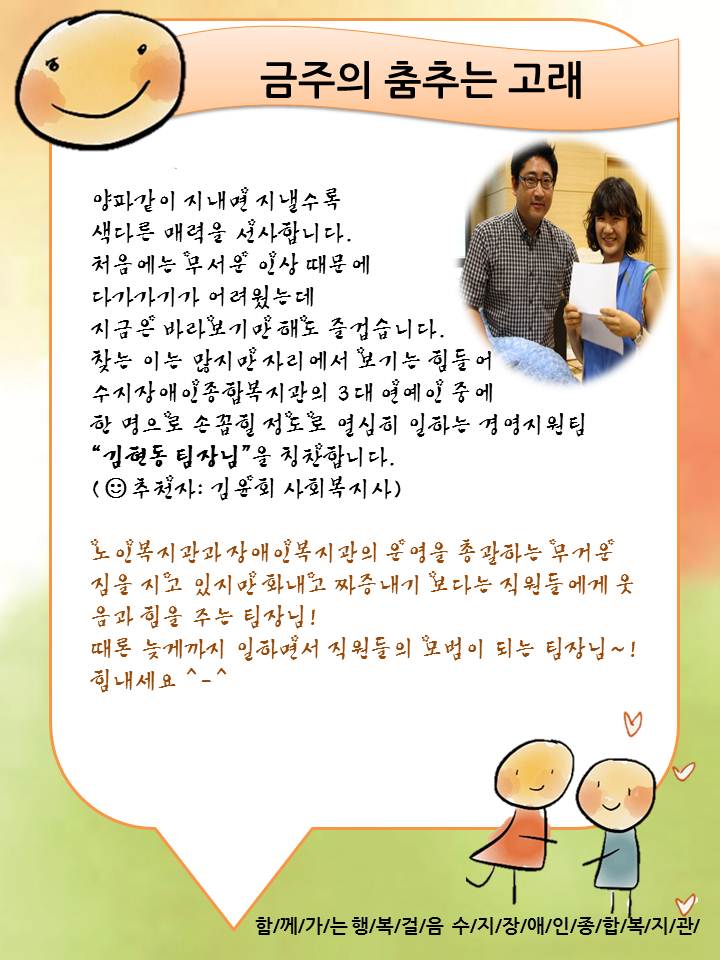 금주의 춤추는 고래
양파같이 지내면 지낼수록
색다른 매력을 선사합니다.
처음에는 무서운 인상 때문에
다가가기가 어려웠는데
지금은 바라보기만 해도 즐겁습니다.
찾는 이는 많지만 자리에서 보기는 힘들어
수지장애인종합복지관의 3대 연예인 중에
한 명으로 손꼽힐 정도로 열심히 일하는 경영지원팀
“김현동 팀장님”을 칭찬합니다.
(☺추천자: 김윤희 사회복지사)
노인복지관과 장애인복지관의 운영을 총괄하는 무거운
짐을 지고 있지만 화내고 짜증내기 보다는 직원들에게 웃
음과 힘을 주는 팀장님!
때론 늦게까지 일하면서 직원들의 모범이 되는 팀장님~!
힘내세요 ^-^
함/께/가/는 행/복/걸/음 수/지/장/애/인/종/합/복/지/관/